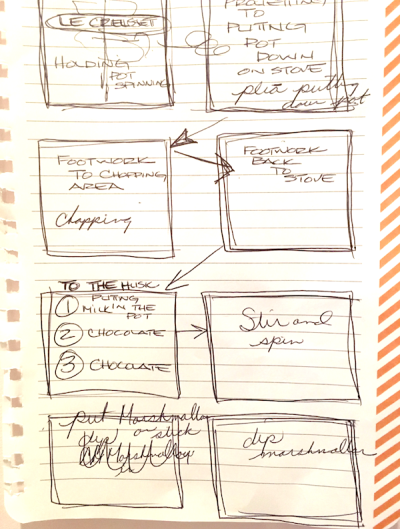 LE CREUSET
HOLDING
POT
SPINNING
TO
PUTTING
POT
DOWN
ON STOVE
putting
down pot
FOOTWORK
TO CHOPPING
AREA
Chopping
FOOTWORK
BACK
TO
STOVE
TO THE MUSIC
1 PUTTING
MILK IN THE
POT
2 CHOCOLATE
3 CHOCOLATE
Stir and
spin
put Marshmallow
on stick
dip
Marshmallow
in
dip
marshmallow